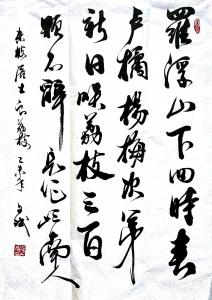 羅浮山下四時春
卢橘楊梅次第
新日啖荔枝三百
顆不辭長作岭南人
東坡居士食荔枝乙未年